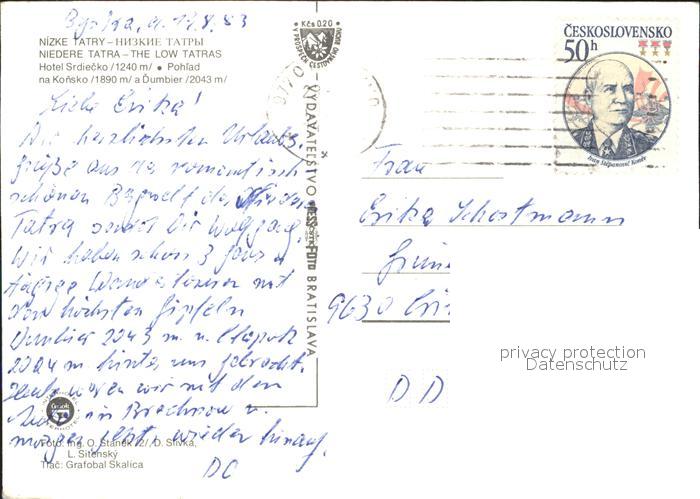 Bystra, d. 17.8.83
NÍZKE TATRY – НИЗКИЕ ТАТРЫ
NIEDERE TATRA – THE LOW TATRAS
Hotel Srdiečko /1240 m/ • Pohľad
na Koňsko /1890 m/ a Ďumbier /2043 m/
Liebe Erika!
Die herzlichsten Urlaubs-
grüße aus der romantisch
schönen Bergwelt der Niederen
Tatra sendet Dir Wolfgang.
Wir haben schon 3 ganz
Wandertouren mit
den höchsten Gipfeln
Dumbier 2043 m u. Chopok
2024 m hinter uns gebracht.
Heute waren wir mit dem
Auto in u.
morgen geht wieder hinauf.
DC
Foto: Ing. O. Staněk /2/, D. Slivka,
L. Sitenský
Tlač: Grafobal Skalica
Kčs 0.20
V PROSPECH CESTOVNÉHO RUCHU
VYDAVATEĽSTVO
PRESSFOTO
BRATISLAVA
977 0
ČESKOSLOVENSKO
50h
Ivan Stěpanovič Koněv
Frau
Erika Schortmann
9630
DD
privacy protection
Datenschutz